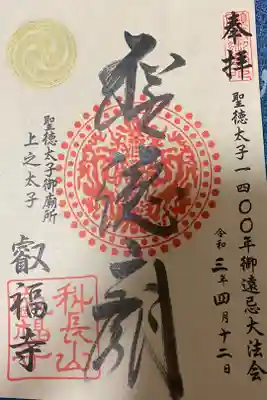 奉拝
聖徳太子一四〇〇年御遠忌大法会
令和三年四月十二日
聖徳太子御廟所
上之太子
叡福寺
科長山